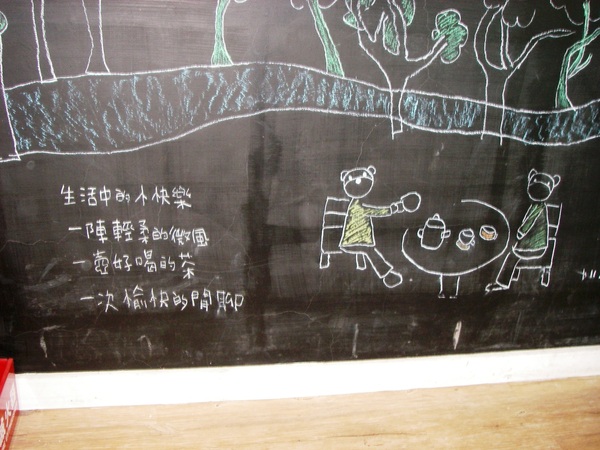 生活中的小快樂
一陣輕柔的微風
一壺好喝的茶
一次愉快的閒聊